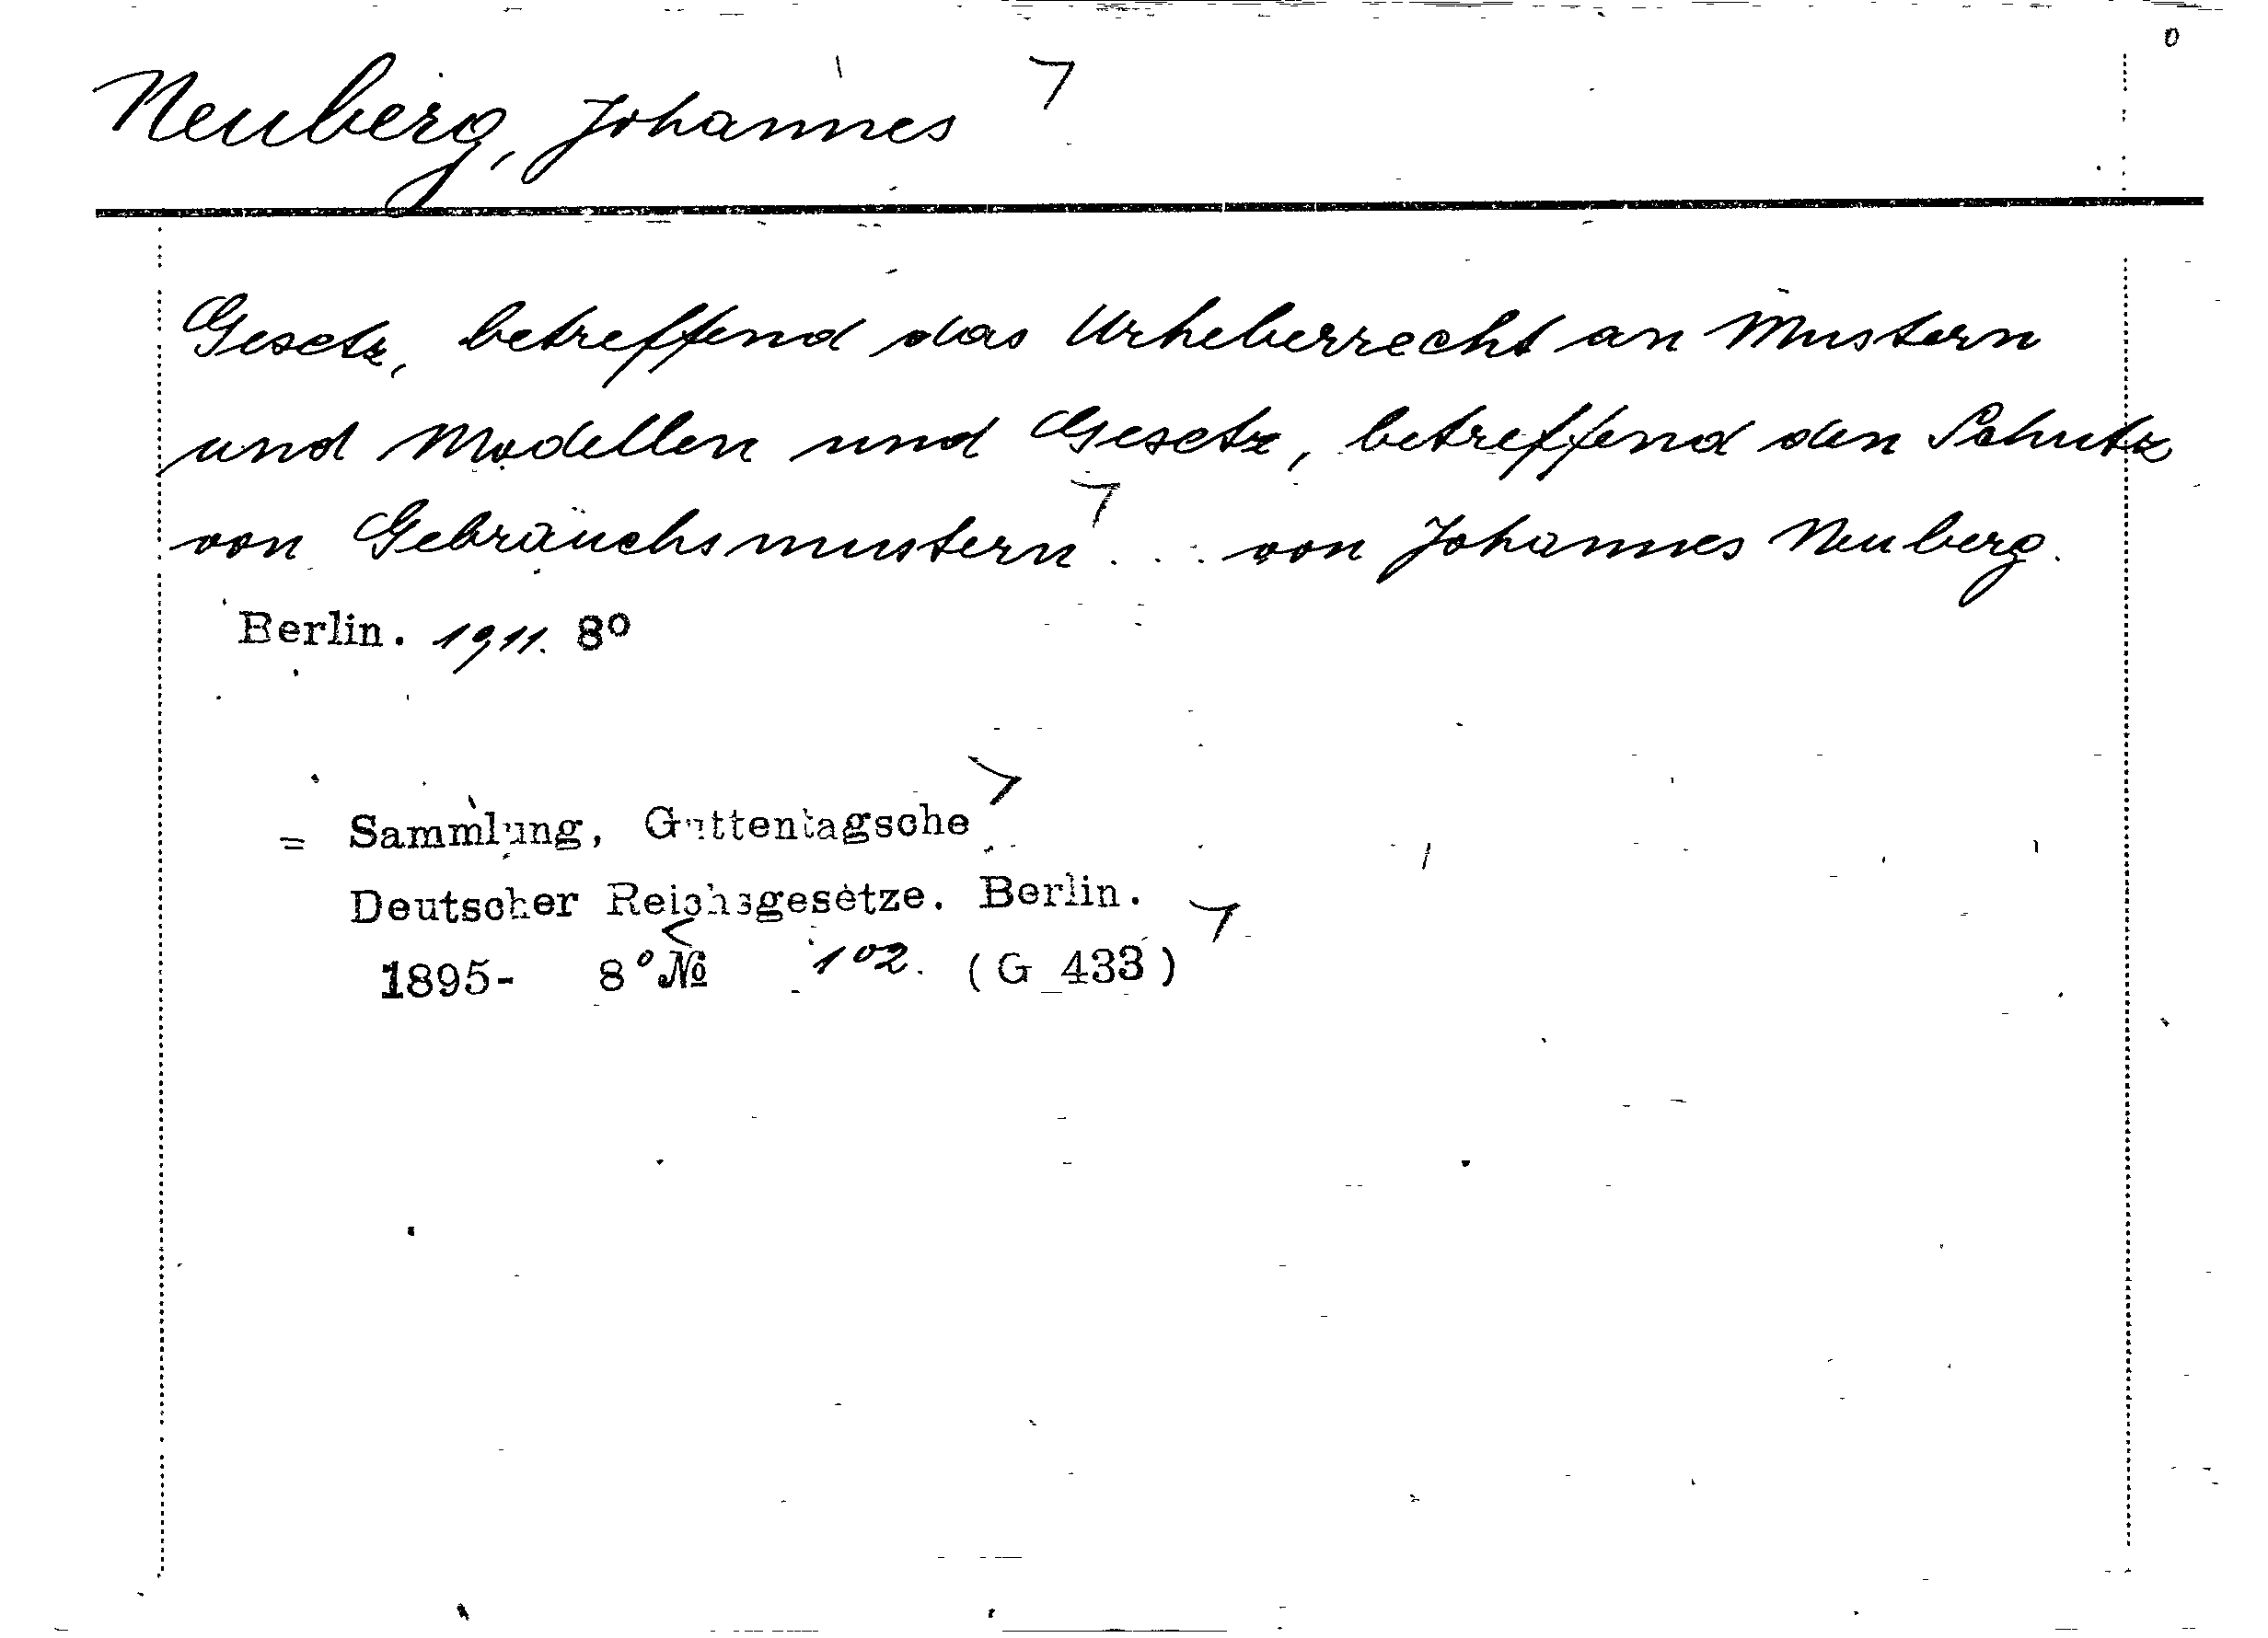 Neuberg, Johannes
Gesetz, betreffend das Urheberrecht an Mustern
und Modellen und Gesetz, betreffend den Schutz
von Gebrauchsmustern ... von Johannes Neuberg.
Berlin. 1911. 8°
= Sammlung, Guttentagsche
Deutscher Reichsgesetze. Berlin.
1895- 8° № 102. (G_433)